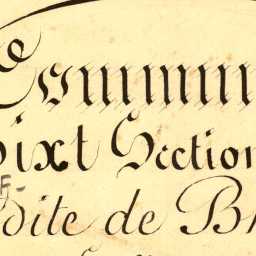 Commun
Sixt Section
F-
dite de B